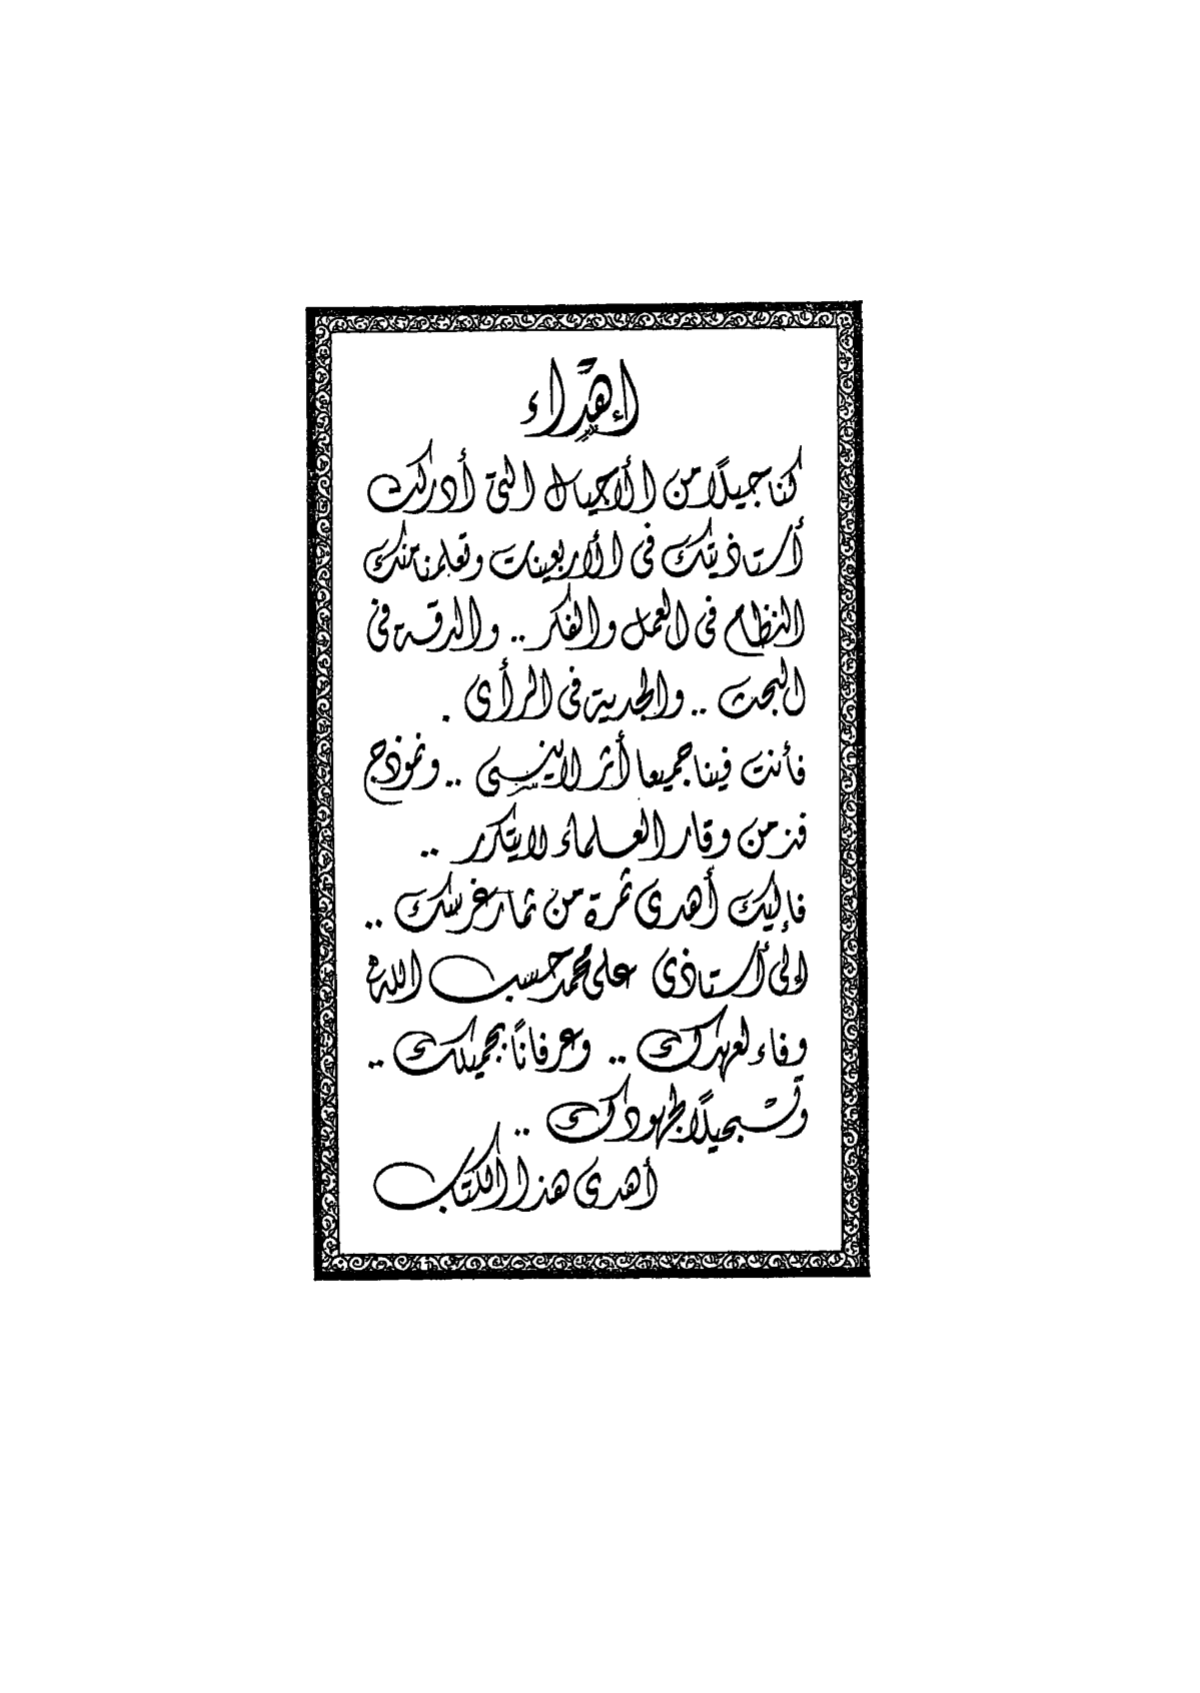 إهداء
كنا جيلًا من الأجيال التى أدركت
أستاذيتك فى الأربعينات وتعلمنا منك
النظام فى العمل والفكر .. والدقة فى
البحث .. والجدية فى الرأى .
فأنت فينا جميعا أثر لا ينسى .. ونموذج
فذ من وقار العلماء لا يتكرر ..
فإليك أهدى ثمرة من ثمار غرسك ..
إلى أستاذى على محمد حسب الله
وفاء لعهدك .. وعرفانًا بجميلك ..
وتسجيلًا لجهودك ..
أهدى هذا الكتاب